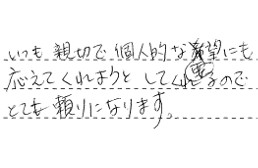 いつも親切で個人的な希望にも
応えてくれようとしてくれるので
とても頼りになります。